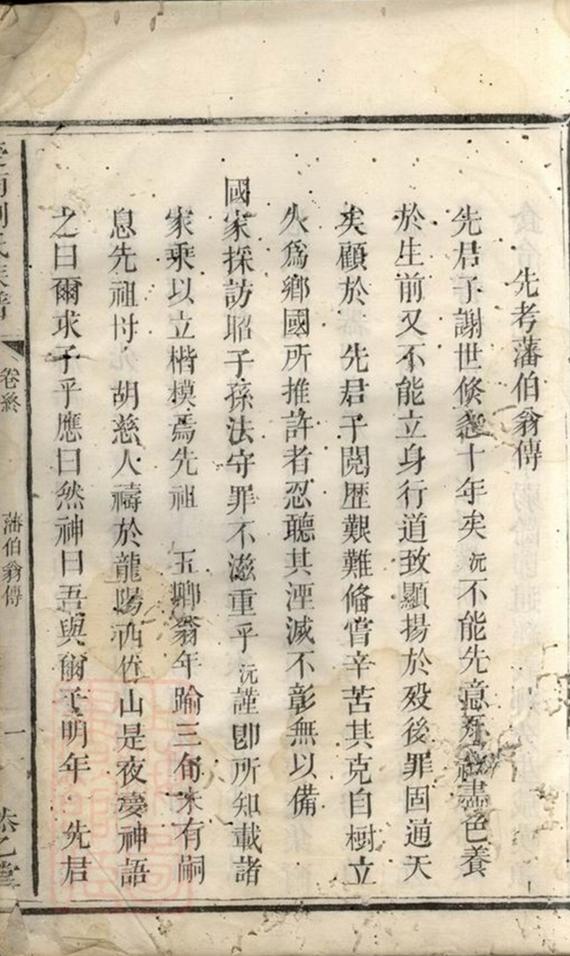 先考藩伯翁傳
先君子謝世倏忽十年矣沅不能先意承盡色養
於生前又不能立身行道致顯揚於殁後罪固通天
矣顧於 先君子閱歷艱難俻嘗辛苦其克自樹立
久爲鄉國所推許者忍聽其湮滅不彰無以備
國家採訪昭子孫法守罪不滋重乎沅謹卽所知載諸
家乘以立楷模焉先祖 玉卿翁年踰三旬未有嗣
息先祖母 胡慈人禱於龍陽山是夜夢神語
之曰爾求子乎應曰然神曰吾與爾子明年 先君
氏族譜
卷終
藩伯翁傳
一
堂